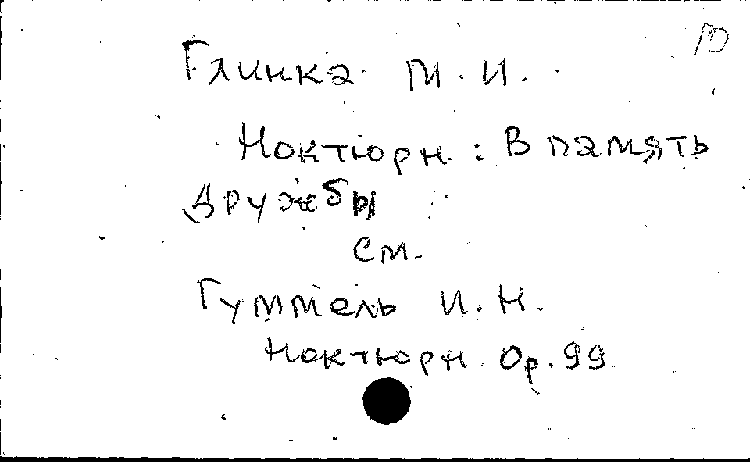 Ю
Глинка М. И.
Ноктюрн: В память
дружбы
см.
Гуммель И. Н.
Ноктюрн. Op. 99